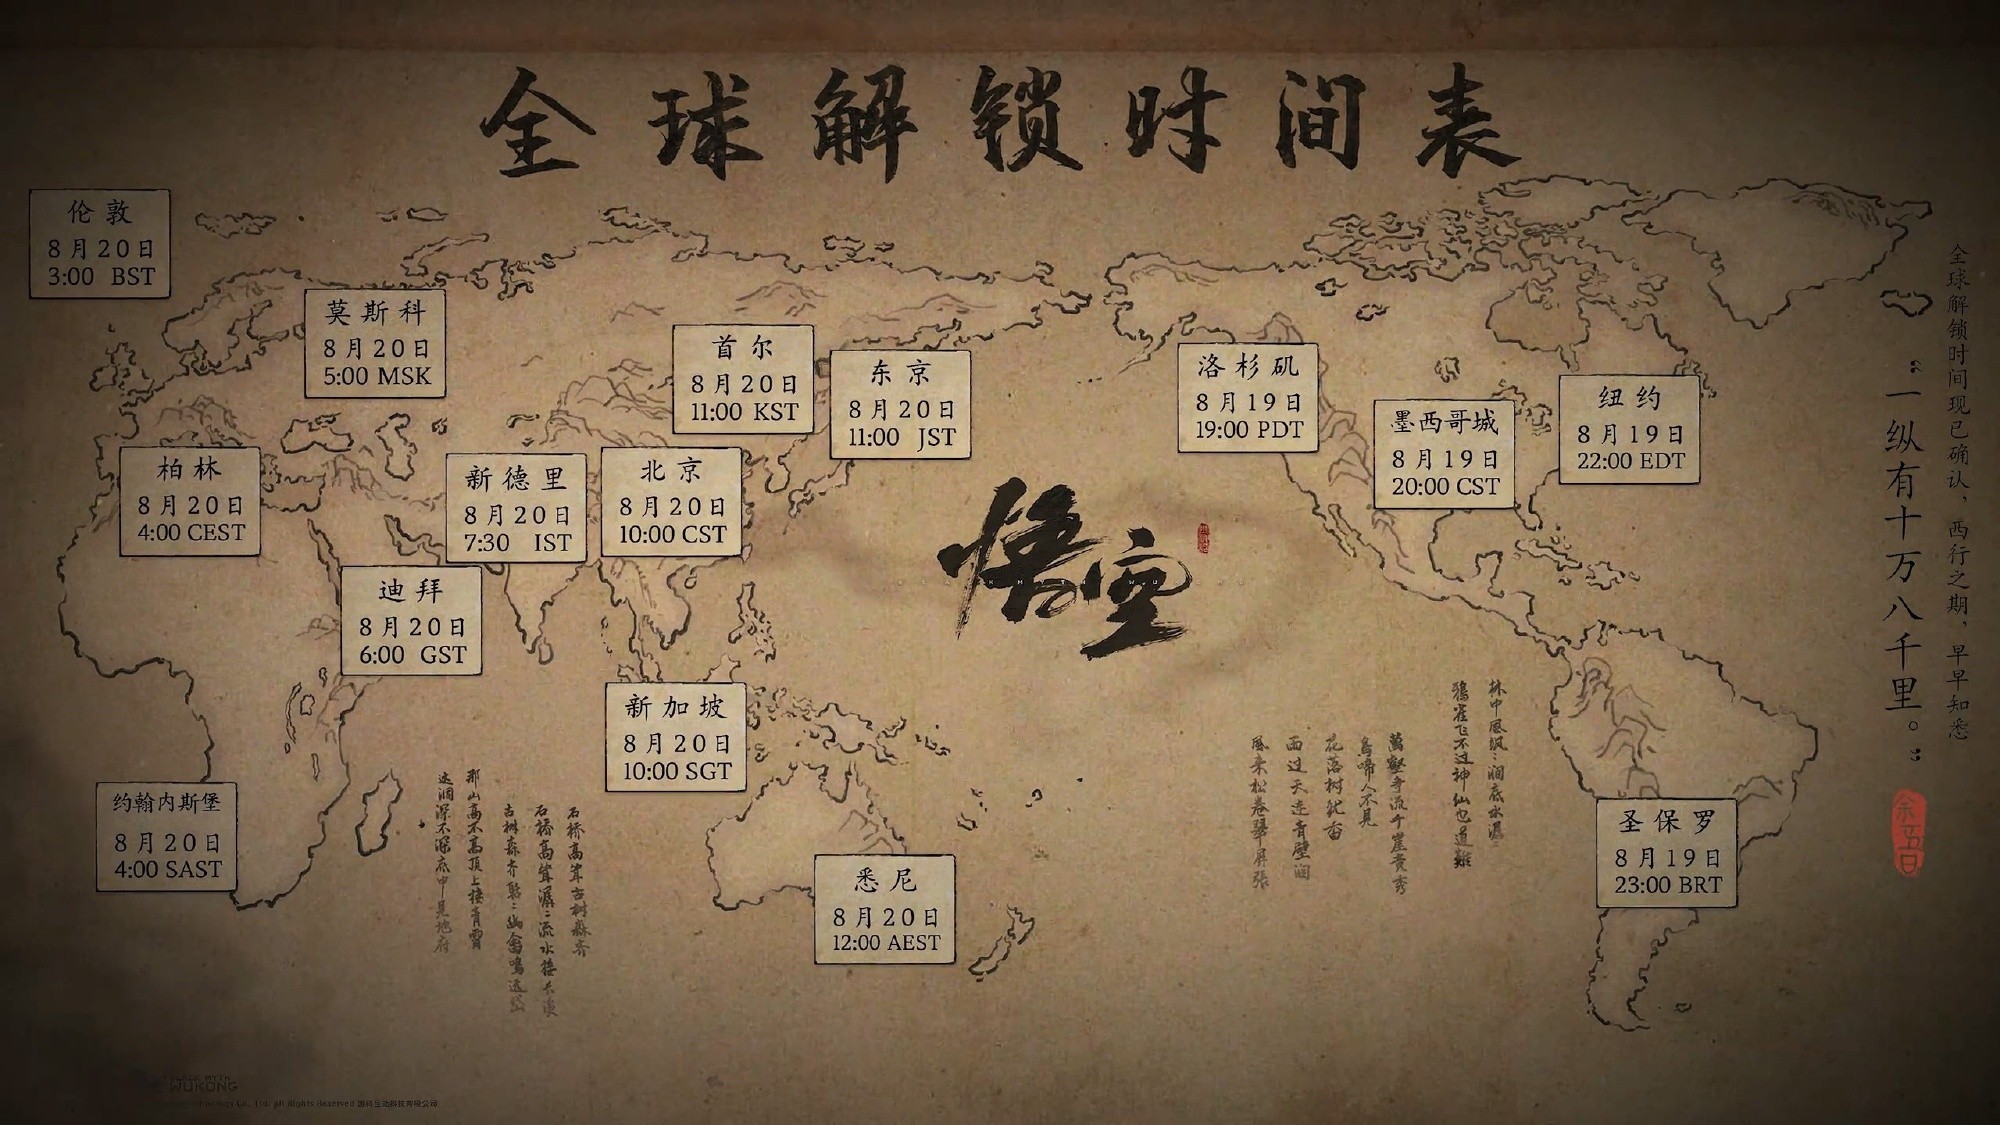 全球解锁时间表
伦敦
8月20日
3:00 BST
莫斯科
8月20日
5:00 MSK
首尔
8月20日
11:00 KST
东京
8月20日
11:00 JST
洛杉矶
8月19日
19:00 PDT
墨西哥城
8月19日
20:00 CST
纽约
8月19日
22:00 EDT
柏林
8月20日
4:00 CEST
新德里
8月20日
7:30 IST
北京
8月20日
10:00 CST
迪拜
8月20日
6:00 GST
新加坡
8月20日
10:00 SGT
约翰内斯堡
8月20日
4:00 SAST
悉尼
8月20日
12:00 AEST
圣保罗
8月19日
23:00 BRT
悟空
全球解锁时间现已确认，西行之期，早早知悉
“一纵有十万八千里。”
林中风飒飒涧底水潺潺
鸦雀飞不过神仙也道难
萬壑争流千崖竞秀
鸟啼人不見
花落树犹香
雨过天连青壁润
風来松卷翠屏張
那山高不高顶上接青霄
这涧深不深底中見地府
WUKONG